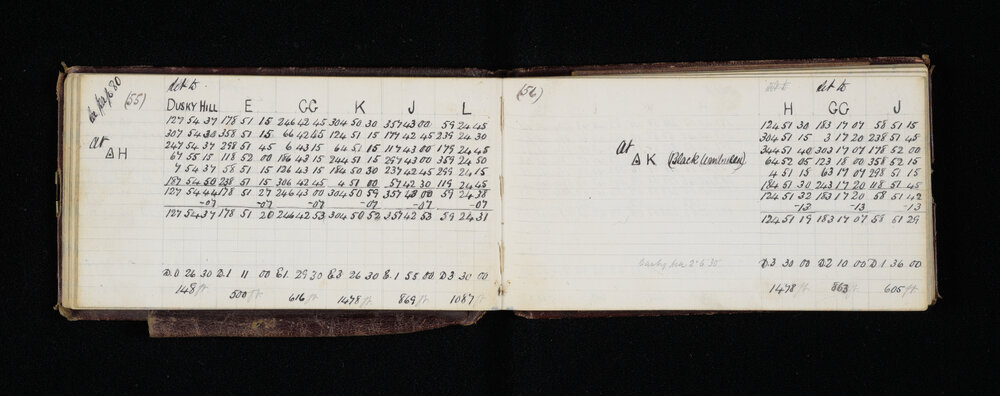 (55)
Set to
DUSKY HILL E GG K J L
127 54 37 178 51 15 246 42 45 304 50 30 357 43 00 59 24 45
307 54 30 358 51 15 66 42 45 124 51 15 177 42 45 239 24 30
At
247 54 37 298 51 45 6 43 15 64 51 15 117 43 00 179 24 45
△ H
67 55 15 118 52 00 186 43 15 244 51 15 297 43 00 359 24 50
7 54 37 58 51 15 126 43 15 184 50 30 237 42 45 299 24 15
187 54 50 238 51 15 306 42 45 4 51 00 57 42 30 119 24 45
127 54 44 178 51 27 246 43 00 304 50 59 357 43 00 59 24 38
-07 -07 -07 -07 -07 -07
127 54 37 178 51 20 246 42 53 304 50 52 357 42 53 59 24 31
D.0 26 30 D.1 11 00 E.1 29 30 E.3 26 30 E.1 55 00 D.3 30 00
148 ft 500 ft 616 ft 1478 ft 869 ft 1087 ft
(56)
Set to Set to
H GG J
124 51 30 183 17 07 58 51 15
304 51 15 3 17 20 238 51 45
At
344 51 40 303 17 07 178 52 00
△ K
64 52 05 123 18 00 358 52 15
4 51 15 63 17 07 298 51 15
184 51 30 243 17 20 118 51 45
124 51 32 183 17 20 58 51 42
-13 -13 -13
124 51 19 183 17 07 58 51 29
D.3 30 00 D.2 10 00 D.1 36 00
1478 ft 863 ft 605 ft